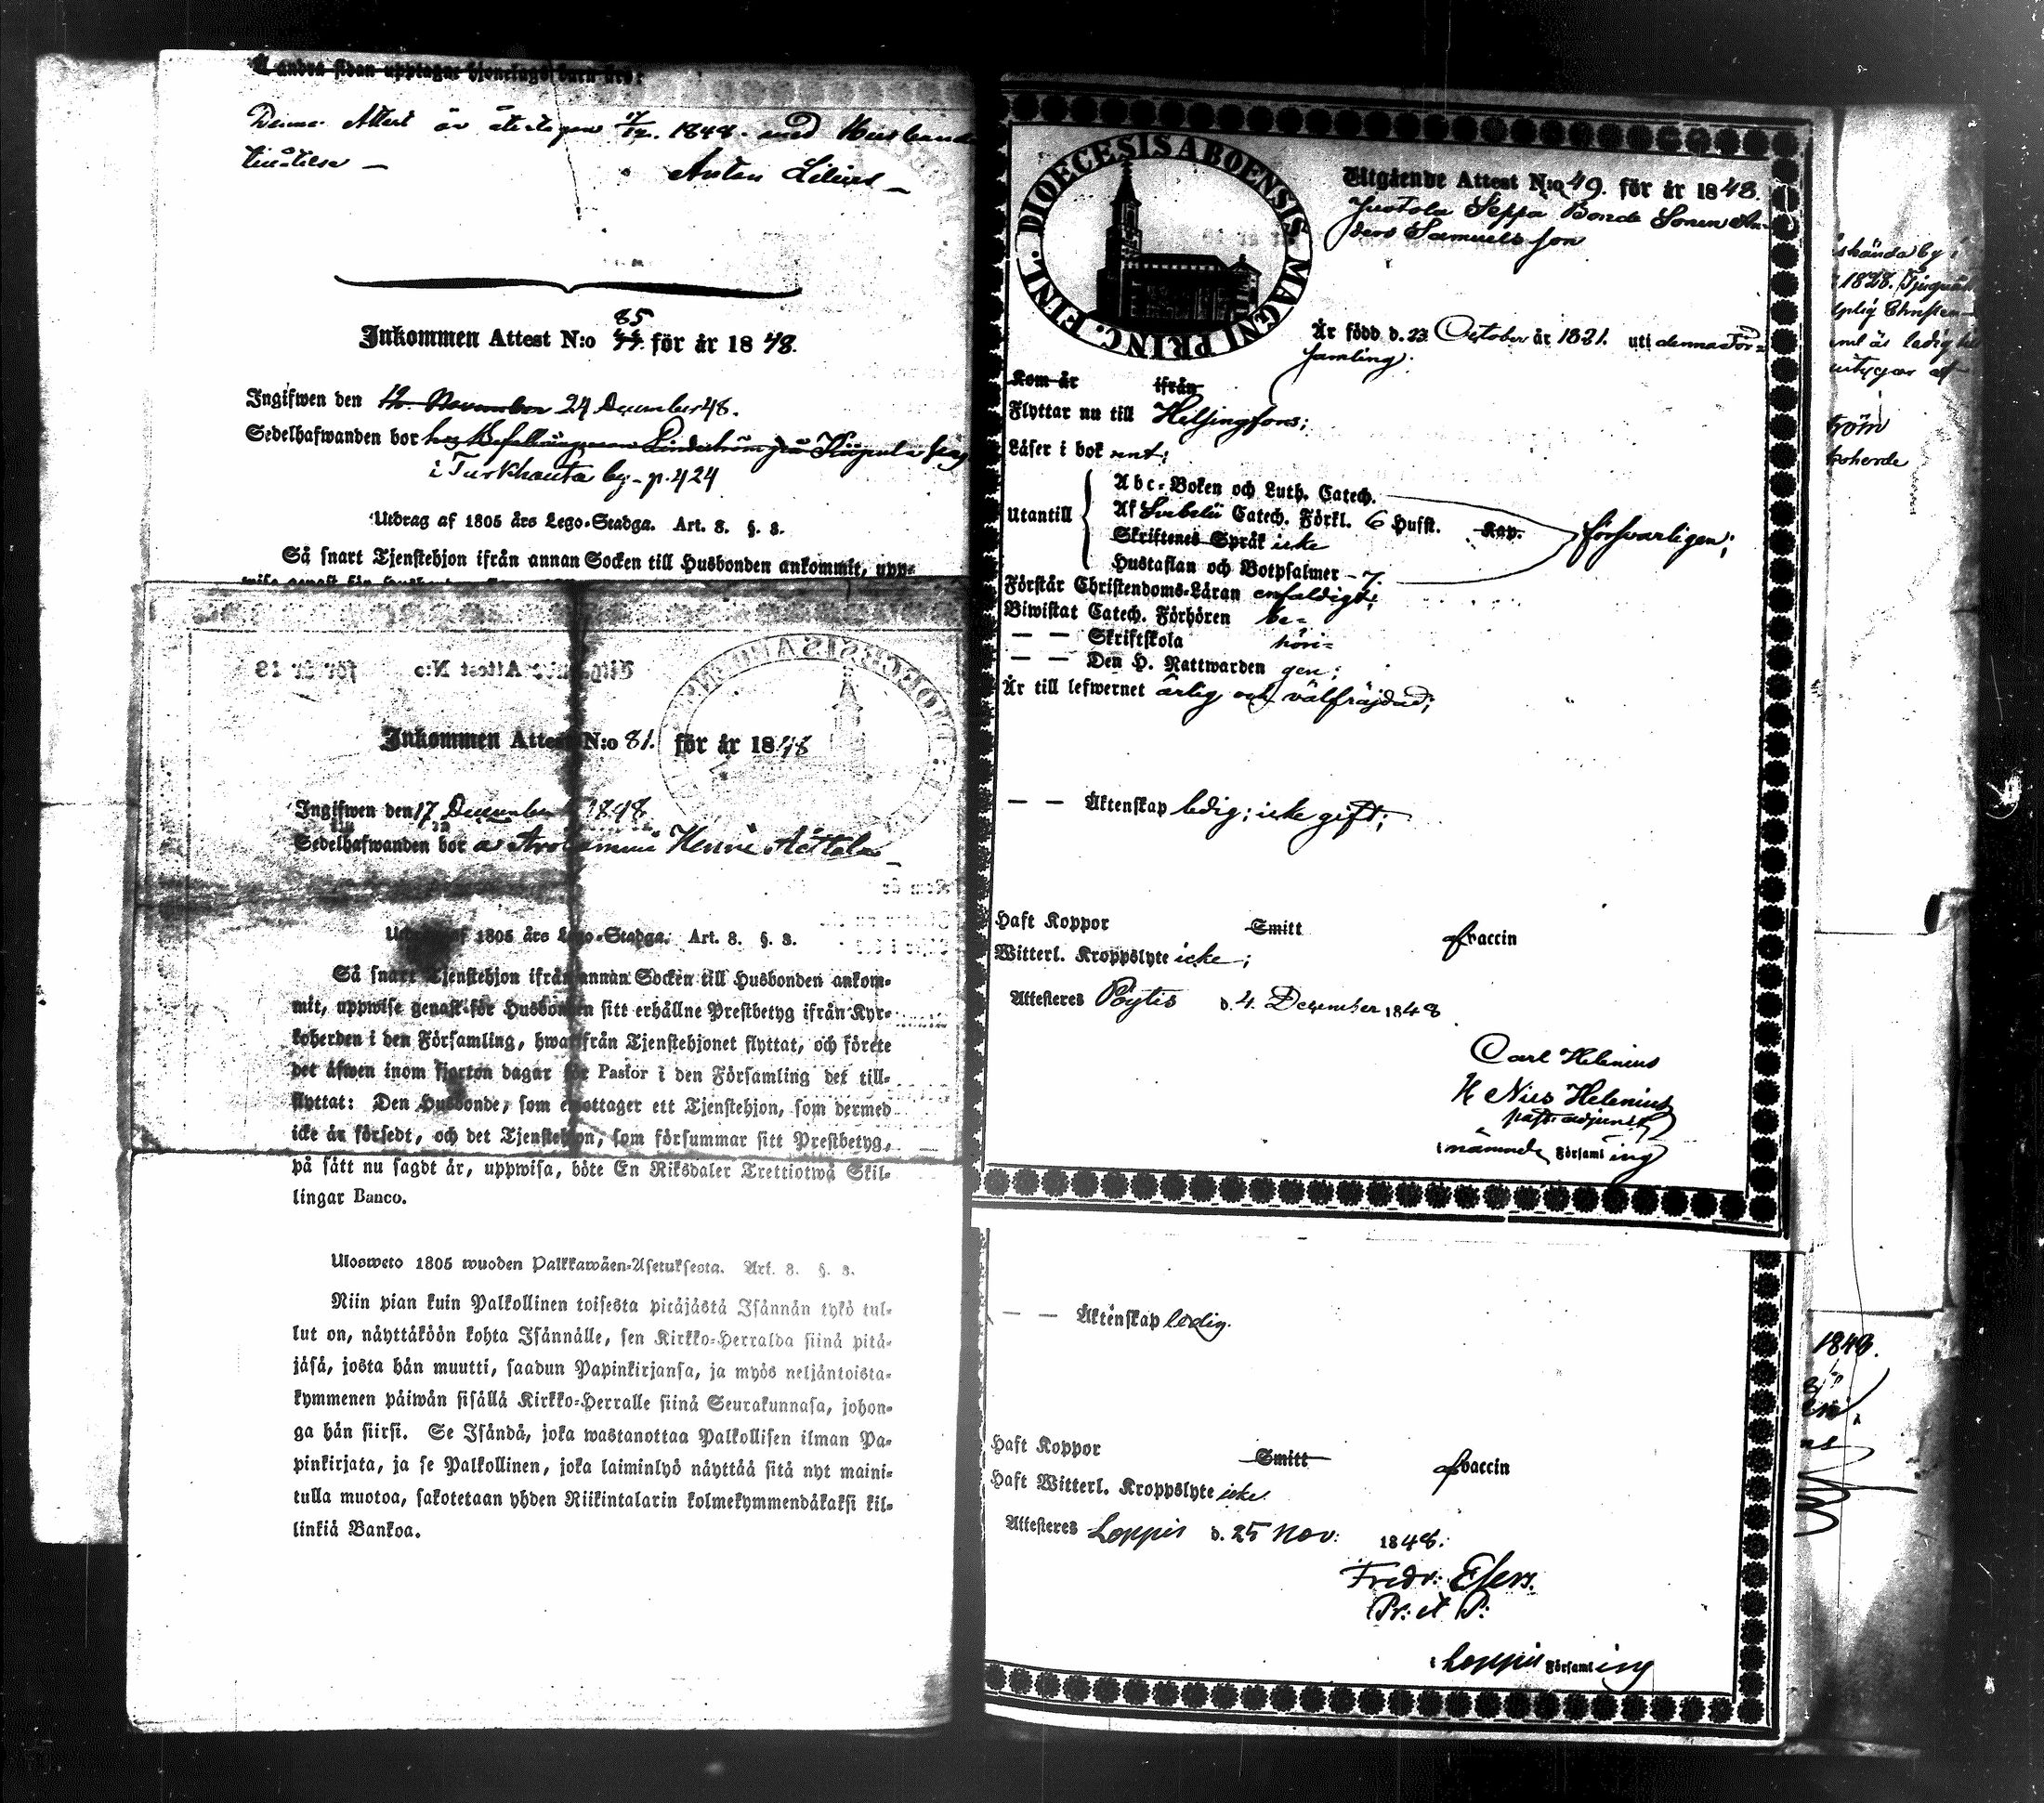 Å andra sidan upptagne hjonelags barn äro:
Denna Attest är återtagen 17/12. 1848. med Husbonde
tillåtelse —
Anton Lilius —
Inkommen Attest N:o 85 för år 1848.
Ingifwen den 12. November 24 December 48.
Sedelhafwanden bor hos Befallningsman
i Turkhauta by - p. 424
Utdrag af 1805 års Lego-Stadga. Art. 8. §. 8.
Så snart Tjenstehjon ifrån annan Socken till Husbonden ankommit, upp-
Utgående Attest N:o för år 18
Inkommen Attest N:o 81. för år 1848
Ingifwen den 17 December 1848
Sedelhafwanden bor
Utdrag af 1805 års Lego-Stadga. Art. 8. §. 8.
Så snart Tjenstehjon ifrån annan Socken till Husbonden ankom-
mit, uppwise genast för Husbonden sitt erhållne Prestbetyg ifrån Kyr-
koherden i den Församling, hwarifrån Tjenstehjonet flyttat, och förete
det äfwen inom fjorton dagar för Pastor i den Församling det till-
flyttat: Den Husbonde, som emottager ett Tjenstehjon, som dermed
icke är försedt, och det Tjenstehjon, som försummar sitt Prestbetyg,
på sätt nu sagdt är, uppwisa, böte En Riksdaler Trettiotwå Skil-
lingar Banco.
Ulosweto 1805 wuoden Palkkawäen-Asetuksesta. Art. 8. §. 8.
Niin pian kuin Palkollinen toisesta pitäjästä Isännän tykö tul-
lut on, näyttäköön kohta Isännälle, sen Kirkko-Herralda siinä pitä-
jäsä, josta hän muutti, saadun Papinkirjansa, ja myös neljäntoista-
kymmenen päiwän sisällä Kirkko-Herralle siinä Seurakunnasa, johon-
ga hän siirsi. Se Isändä, joka wastanottaa Palkollisen ilman Pa-
pinkirjata, ja se Palkollinen, joka laiminlyö näyttää sitä nyt maini-
tulla muotoa, sakotetaan yhden Riikintalarin kolmekymmendäkaksi kil-
linkiä Bankoa.
DIOECESIS ABOENSIS MAGNI PRINC. FINL.
Utgående Attest N:o 49. för år 1848.
Juvtola Seppä Bonde Sonen An-
ders Samuelsson
Är född d. 23 October år 1821. uti denna För-
samling;
Kom år ifrån
Flyttar nu till Helsingfors;
Läser i bok rent;
Utantill
Abc-Boken och Luth. Catech.
Af Svebelii Catech. Förkl. 6 Hufst. Kap.
försvarligen;
Skriftenes Språk icke
Hustaflan och Botpsalmer - 7.
Förstår Christendoms-Läran enfaldigt;
Biwistat Catech. Förhören be-
— — Skriftskola höri-
— — Den H. Nattwarden gen;
Är till lefwernet ärlig och välfräjdad;
— — Äktenskap ledig; icke gift;
Haft Koppor Smitt af vaccin
Witterl. Kroppslyte icke;
Attesteres Pöytis d. 4. December 1848
Carl Helenius
Helenius
past: adjunct
i nämnde Församling
— — Äktenskap ledig.
Haft Koppor Smitt af vaccin
Haft Witterl. Kroppslyte icke.
Attesteres Loppis d. 25 Nov: 1848.
Fredr: Elers.
Pr: et P:
i Loppis Församling
1828.
1848.